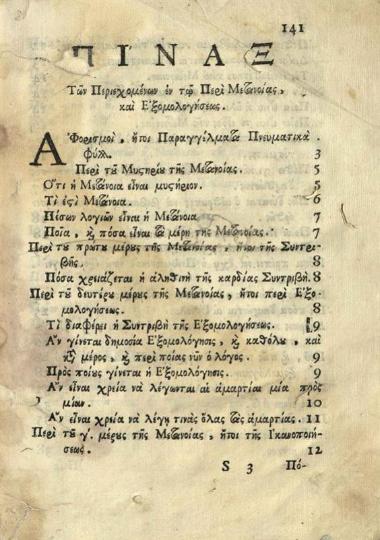 141
ΠΙΝΑΞ
Τῶν Περιεχομένων ἐν τῷ Περὶ Μετανοίας,
καὶ Ἐξομολογήσεως.
ΑΦορισμοὶ, ἤτοι Παραγγέλματα Πνευματικὰ.
φύλ. 3
Περὶ τȣ͂ Μυϛηρίȣ τῆς Μετανοίας. 5
Ὅτι ἡ Μετάνοια εἶναι μυϛήριον. 5
Τί ἐϛὶ Μετάνοια. 6
Πόσων λογιῶν εἶναι ἡ Μετάνοια 7
Ποῖα, ϗ πόσα εἶναι τὰ μέρη τῆς Μετανοίας. 7
Περὶ τȣ πρώτȣ μέρȣς τῆς Μετανοίας, ἤτοι τῆς Συντρι-
βῆς. 8
Πόσα χρειάζεται ἡ ἀληθινὴ τῆς καρδίας Συντριβή. 8
Περὶ τȣ͂ δευτέρȣ μέρȣς τῆς Μετανοίας, ἤτοι περὶ Ἐξο-
μολογήσεως. 8
Τί διαφέρει ἡ Συντριβὴ τῆς Ἐξομολογήσεως. 9
Ἂν γίνεται δημοσία Ἐξομολόγησις, ϗ καθόλȣ, καὶ
κτ̀ μέρος, ϗ περὶ ποίας νῦν ὁ λόγος. 9
Πρὸς ποίȣς γίνεται ἡ Ἐξομολόγησις. 9
Ἂν εἶναι χρεία νὰ λέγωνται αἱ ἁμαρτίαι μία πρὸς
μίαν. 10
Ἂν εἶναι χρεία νὰ λέγῃ τινὰς ὅλας τὰς ἁμαρτίας. 11
Περὶ τȣ͂ γ΄. μέρȣς τῆς Μετανοίας, ἤτοι τῆς Ἱκανοποιή-
σεως. 12
S 3 Πό-